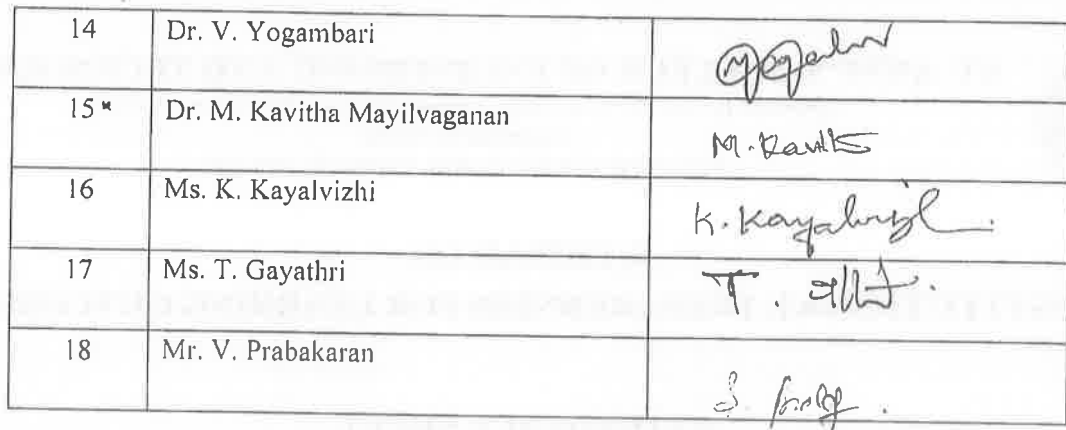 14 Dr. V. Yogambari
15* Dr. M. Kavitha Mayilvaganan M. Kavitha
16 Ms. K. Kayalvizhi K. Kayalvizhi.
17 Ms. T. Gayathri T.
18 Mr. V. Prabakaran